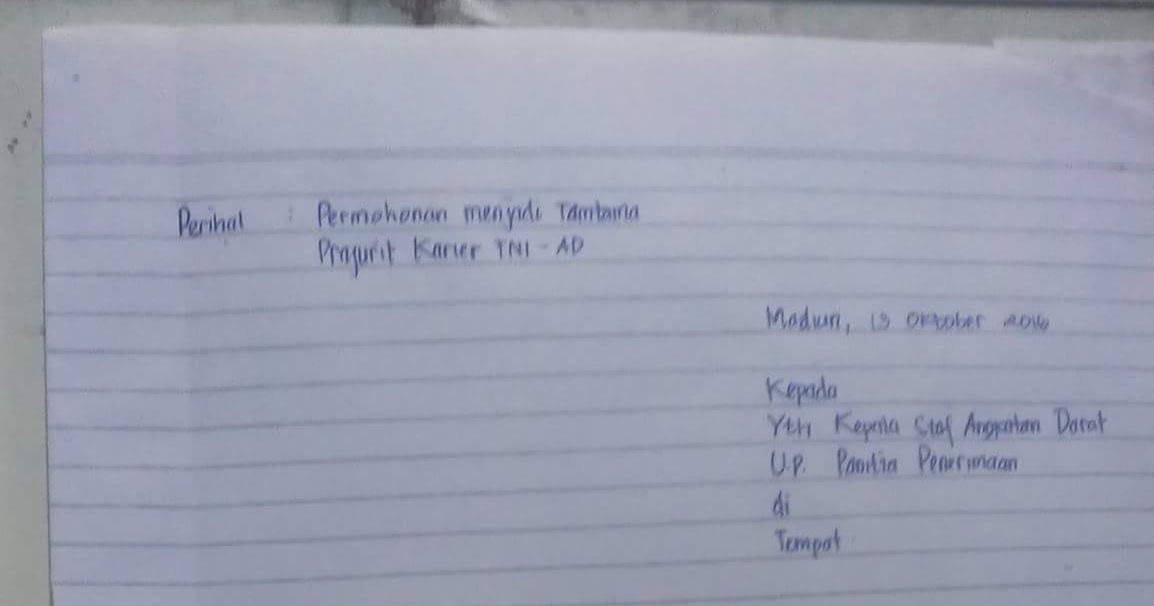 Perihal : Permohonan menjadi Tamtama
Prajurit Karier TNI - AD
Madiun, 13 Oktober 2016
Kepada
Yth Kepala Staf Angkatan Darat
U.P. Panitia Penerimaan
di
Tempat